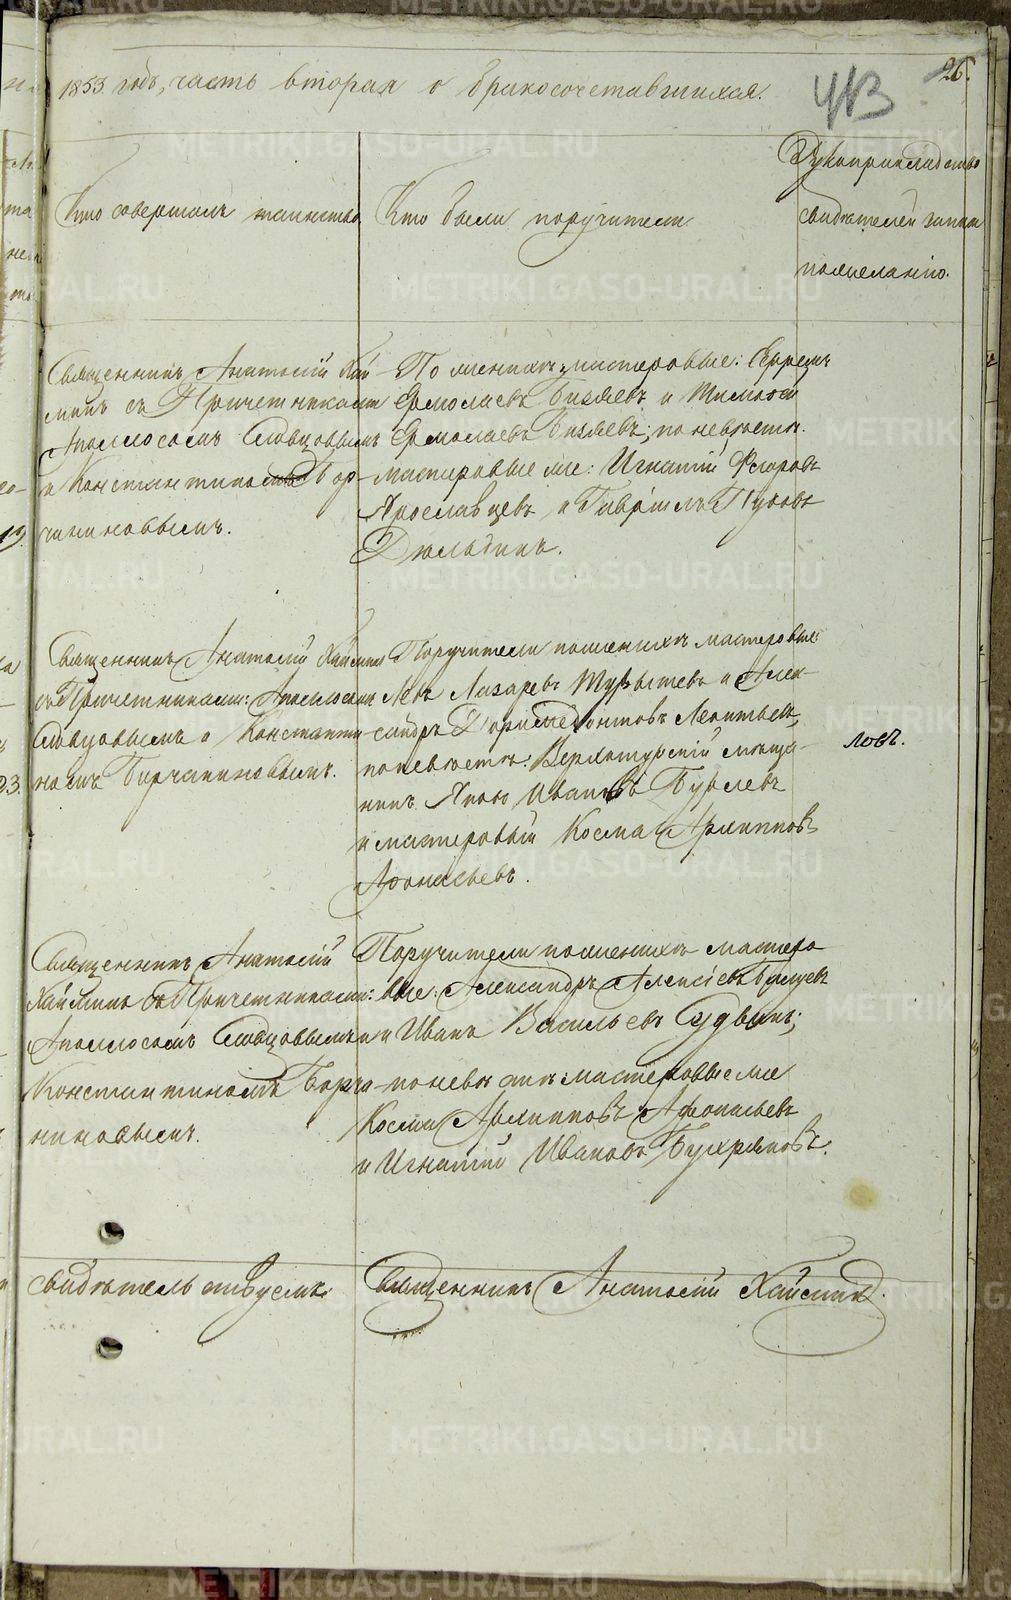 26.
1853 годъ, часть вторая о бракосочетавшихся.
413
Кто совершалъ таинство
Кто были поручители
Рукоприкладство
свидѣтелей записи
по желанію.
Священникъ Анатолій Хай-
минъ съ Причетниками
Аполлосомъ Словцовымъ
и Константиномъ Бор-
чаниновымъ.
По женихѣ мастеровые: Ефремъ
Ермолаевъ и Тимофей
Ермолаевъ; по невѣстѣ:
мастеровые же: Игнатій Ѳедоровъ
Ярославцевъ и Гавріилъ
Дюльдинъ.
Священникъ Анатолій Хайминъ
съ Причетниками: Аполлосомъ
Словцовымъ и Константи-
номъ Борчаниновымъ.
Поручители по женихѣ мастеровые:
Левъ Лазаревъ и Алек-
сандръ Доримедонтовъ Леонтьевъ,
по невѣстѣ: Верхотурскій мѣща-
нинъ Ивановъ
и мастеровый Косма Архиповъ
Афонасьевъ.
ловъ.
Священникъ Анатолій
Хайминъ съ Причетниками:
Аполлосомъ Словцовымъ и
Константиномъ Борча-
ниновымъ.
Поручители по женихѣ мастеро
вые: Александръ Алексѣевъ
и Иванъ Васильевъ
по невѣстѣ: мастеровые же
Косма Архиповъ Афонасьевъ
и Игнатій Ивановъ
свидѣтельствуемъ:
Священникъ Анатолій Хайминъ.
METRIKI.GASO-URAL.RU